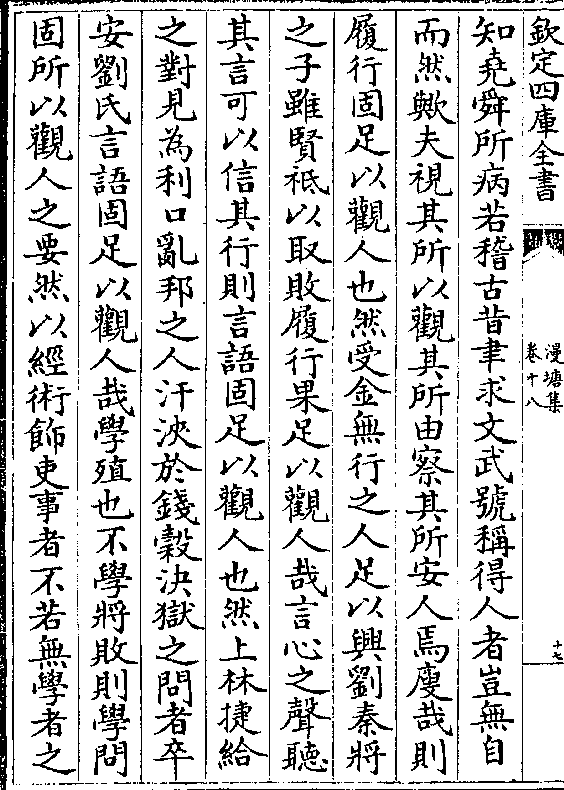 欽定四庫全書
漫塘集
卷十八
十七
知堯舜所病若稽古昔聿求文武號稱得人者豈無自
而然歟夫視其所以觀其所由察其所安人焉廋哉則
履行固足以觀人也然受金無行之人足以興劉秦將
之子雖賢祗以取敗履行果足以觀人哉言心之聲聽
其言可以信其行則言語固足以觀人也然上林捷給
之對見為利口亂邦之人汗浹於錢穀決獄之問者卒
安劉氏言語固足以觀人哉學殖也不學將敗則學問
固所以觀人之要然以經術飾吏事者不若無學者之